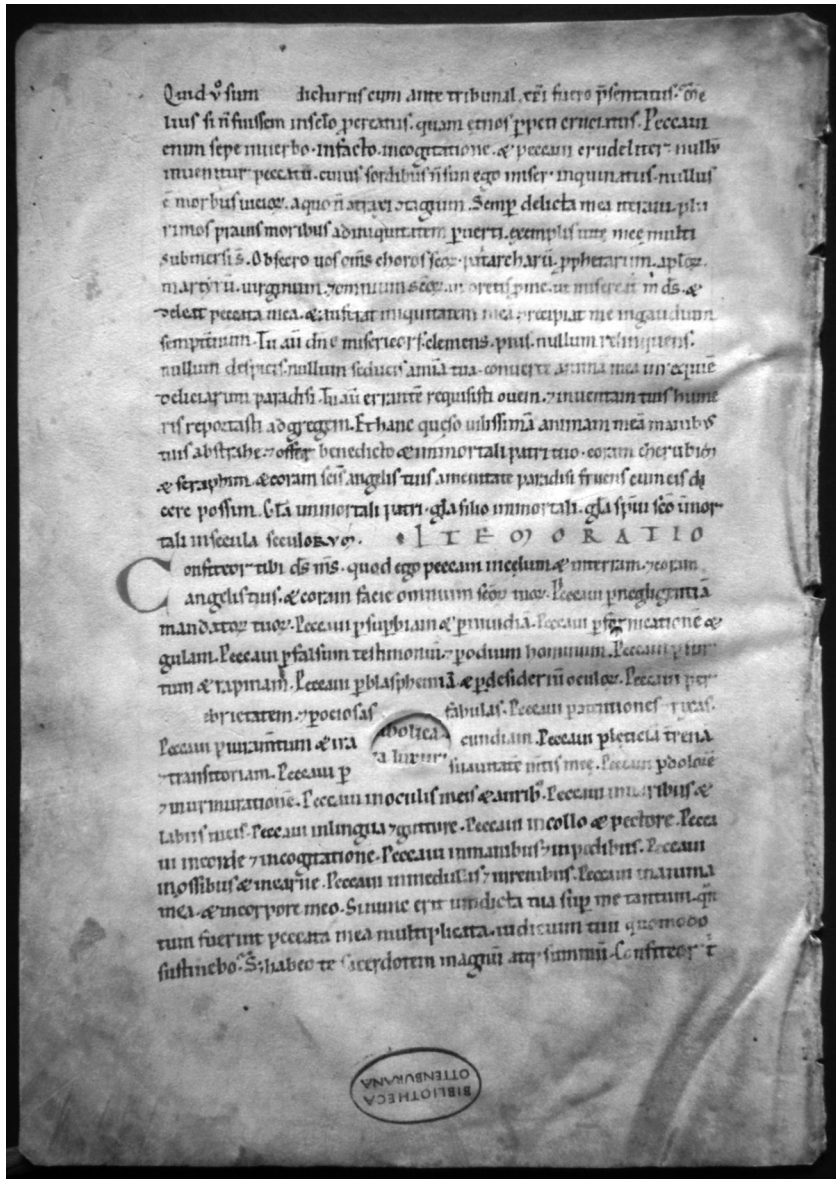 Quid v͛o sum dicturus cum ante tribunal. xp̄i fuero p̄sentatus. me
lius si n̄ fuissem in sc̄lo ꝑcreatus. quam et nos ꝑpeti cruciatus. Peccaui
enim sepe in uerbo. in facto. in cogitatione. & peccaui crudeliter. nullū
inuenitur peccatū. cuius sordibus n̄ sim ego miser inquinatus. nullus
ē morbus uicioꝝ. a quo n̄ atraxi contagium. Semꝑ delicta mea iteraui. plu
rimos prauis moribus ad iniquitatem ꝑuerti. exemplis uite meę multi
submersi s̄. Obsecro uos om̄s choros sc̄oꝝ. patarcharū. ꝓphetarum. aplōꝝ.
martyrū. uirginum. ⁊ omnium sc̄oꝝ. ut oretis ꝓ me. ut misereat̄ m̄ ds̄. &
deleat peccata mea. & auferat iniquitatem mea. ⁊ recipiat me in gaudium
sempit̄num. Tu aū dn̄e misericors. clemens. pius. nullum relinquens.
nullum despicis. nullum seducis a uia tua. conuerte anima mea in requiē
deliciarum paradisi. Tu aū errantē requisisti ouem. ⁊ inuentam tuis hume
ris reportasti ad gregem. Et hanc queso uilissimā animam meā manibus
tuis abstrahe. ⁊ offer benedicto & immortali patri tuo. coram cherubim
& seraphim. & coram sc̄is angelis tuis. amenitate paradisi fruens cum eis di
cere possim. Gl̄a immortali patri. gl̄a filio immortali. gl̄a sp̄ui sc̄o īmor
tali in secula seculorum. ITEM ORATIO
Confiteor tibi ds̄ ms̄. quod ego peccaui in cęlum & in terram. ⁊ coram
angelis tuis. & coram facie omnium sc̄oꝝ tuoꝝ. Peccaui ꝑ negligentiā
mandatoꝝ tuoꝝ. Peccaui ꝑ suꝑbiam & ꝑ inuidiā. Peccaui ꝑ fornicationē &
gulam. Peccaui ꝑ falsum testimoniū. ⁊ ꝑ odium hominum. Peccaui ꝑ fur
tum & rapinam. Peccaui ꝑ blasphemiā & ꝑ desideriū oculoꝝ. Peccaui per
ebrietatem. ⁊ ꝑ ociosas fabulas. Peccaui ꝑ contentiones ⁊ rixas.
Peccaui ꝑ iuram̄tum & ira cundiam. Peccaui ꝑ leticiā t̄rena
⁊ transitoriam. Peccaui ꝑ suauitatē m̄tis meę. Peccaui ꝑ dolorē
⁊ murmurationē. Peccaui in oculis meis & aurib;. Peccaui in naribus &
labiis meis. Peccaui in lingua ⁊ gutture. Peccaui in collo & pectore. Pecca
ui in corde ⁊ in cogitatione. Peccaui in manibus ⁊ in pedibus. Peccaui
in ossibus & in carne. Peccaui in medullis ⁊ in renibus. Peccaui in anima
mea. & in corpore meo. Si nunc erit uindicta tua suꝑ me tantum. qn̄
tum fuerint peccata mea multiplicata. iudicium tuū quomodo
sustinebo. S; habeo te sacerdotem magnū atq; summū. Confiteor t̄
BIBLIOTHECA
OTTENBURANA